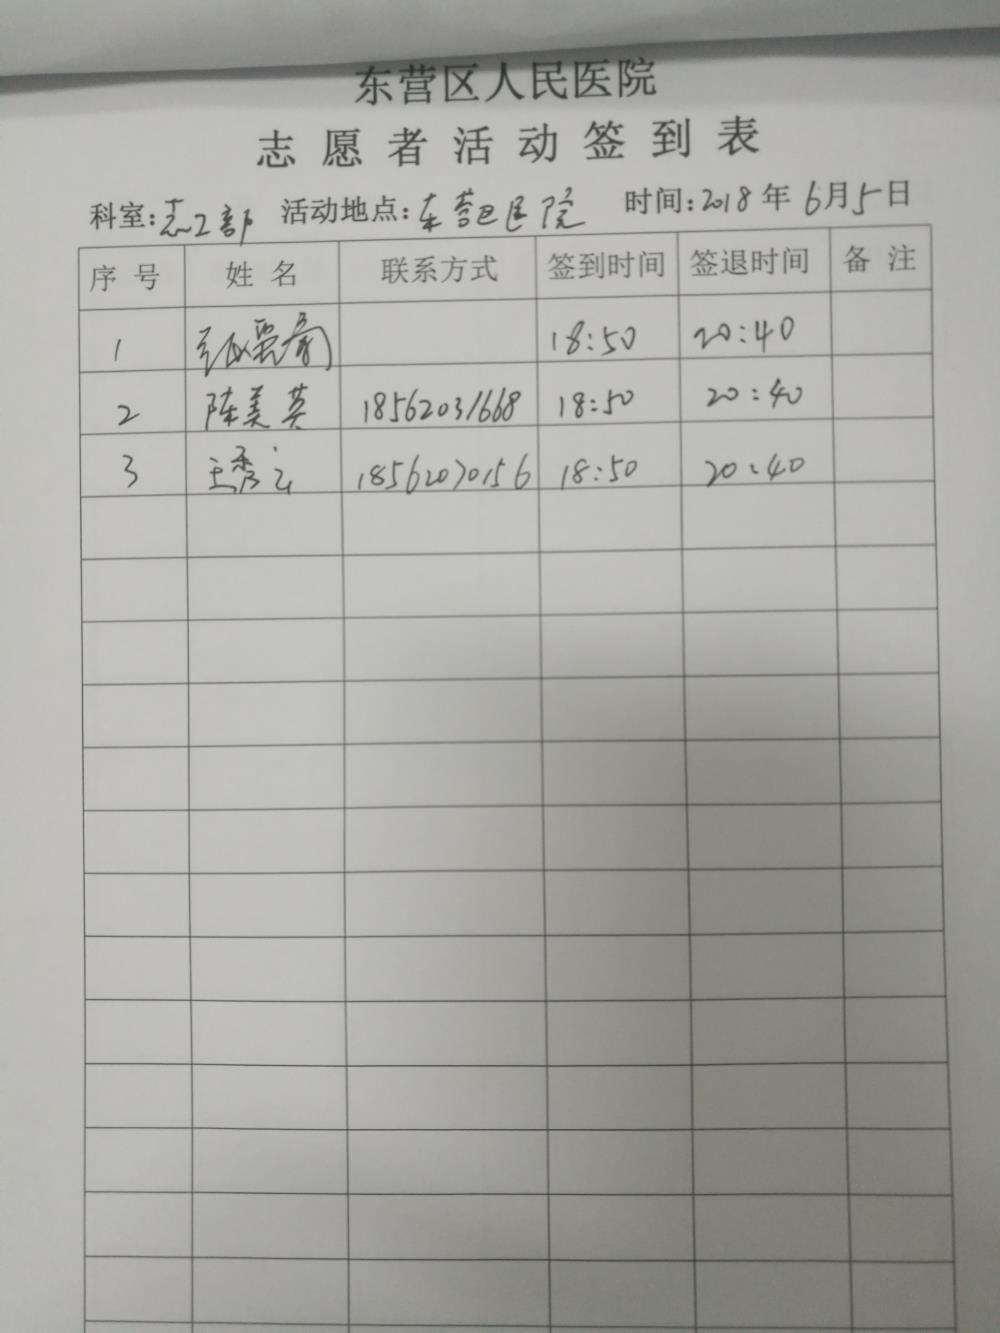 东营区人民医院
志愿者活动签到表
科室:志工部 活动地点:东营区医院 时间:2018年6月5日
序号 姓名 联系方式 签到时间 签退时间 备注
1 18:50 20:40
2 陈美英 18562031668 18:50 20:40
3 王秀云 18562070156 18:50 20:40